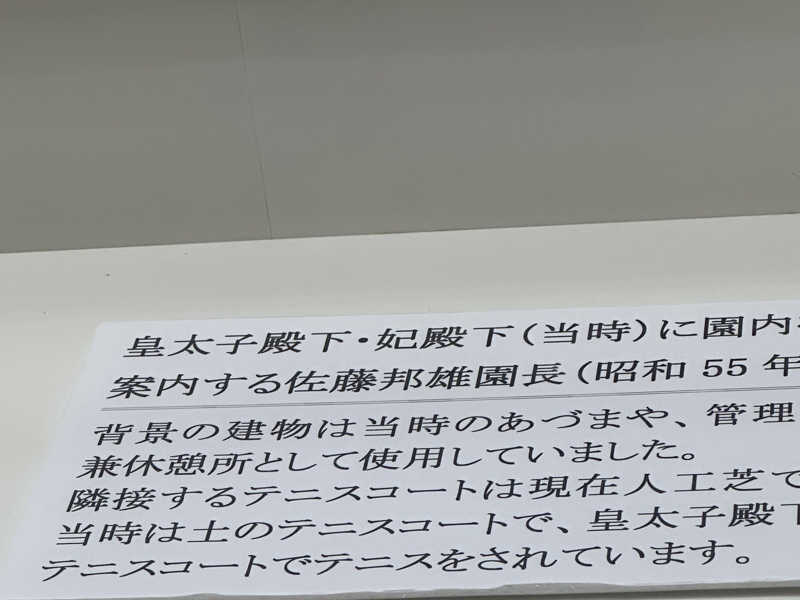 皇太子殿下・妃殿下(当時)に園内
案内する佐藤邦雄園長(昭和 55 年
背景の建物は当時のあづまや、管理
兼休憩所として使用していました。
隣接するテニスコートは現在人工芝で
当時は土のテニスコートで、皇太子殿下
テニスコートでテニスをされています。